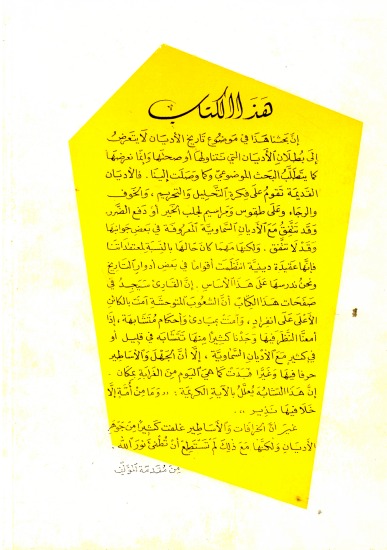 هَذَا الكتاب
إنّ بحثنا هذا في موضوع تاريخ الأديان لا يتعرض
إلى بطلان الأديان التي نتناولها أو صحتها وإنما نعرضها
كما يتطلب البحث الموضوعي وكما وصلت إلينا . فالأديان
القديمة تقوم على فكرة التحليل والتحريم ، والخوف
والرجاء وعلى طقوس ومراسيم لجلب الخير أو دفع الضرر
وقد تتفق مع الأديان السماوية المعروفة في بعض جوانبها
وقد لا تتفق . ولكنها مهما كان حالها بالنسبة لمعتقداتنا
فإنها عقيدة دينية انتظمت أقواما في بعض أدوار التاريخ
ونحن ندرسها على هذا الأساس . إنّ القارئ سيجد في
صفحات هذا الكتاب أنّ الشعوب المتوحشة آمنت بالكائن
الأعلى على انفراد ، وآمنت بمبادئ وأحكام متشابهة ، إذا
أمعنّا النظر فيها وجدنا كثيراً منها تتشابه في قليل أو
في كثير مع الأديان السماوية ، إلّا أنّ الجهل والأساطير
حرفا فيها وغيّرا فغدت كما هي اليوم من الغرابة بمكان .
إنّ هذا التشابه يُعلّل بالآية الكريمة : « وما من أمّة إلّا
خلا فيها نذير » .
غير أنّ الخرافات والأساطير غلفت كثيراً من جوهر
الأديان ولكنها مع ذلك لم تستطع أن تُطفئ نور الله .
من مقدمة المؤلف